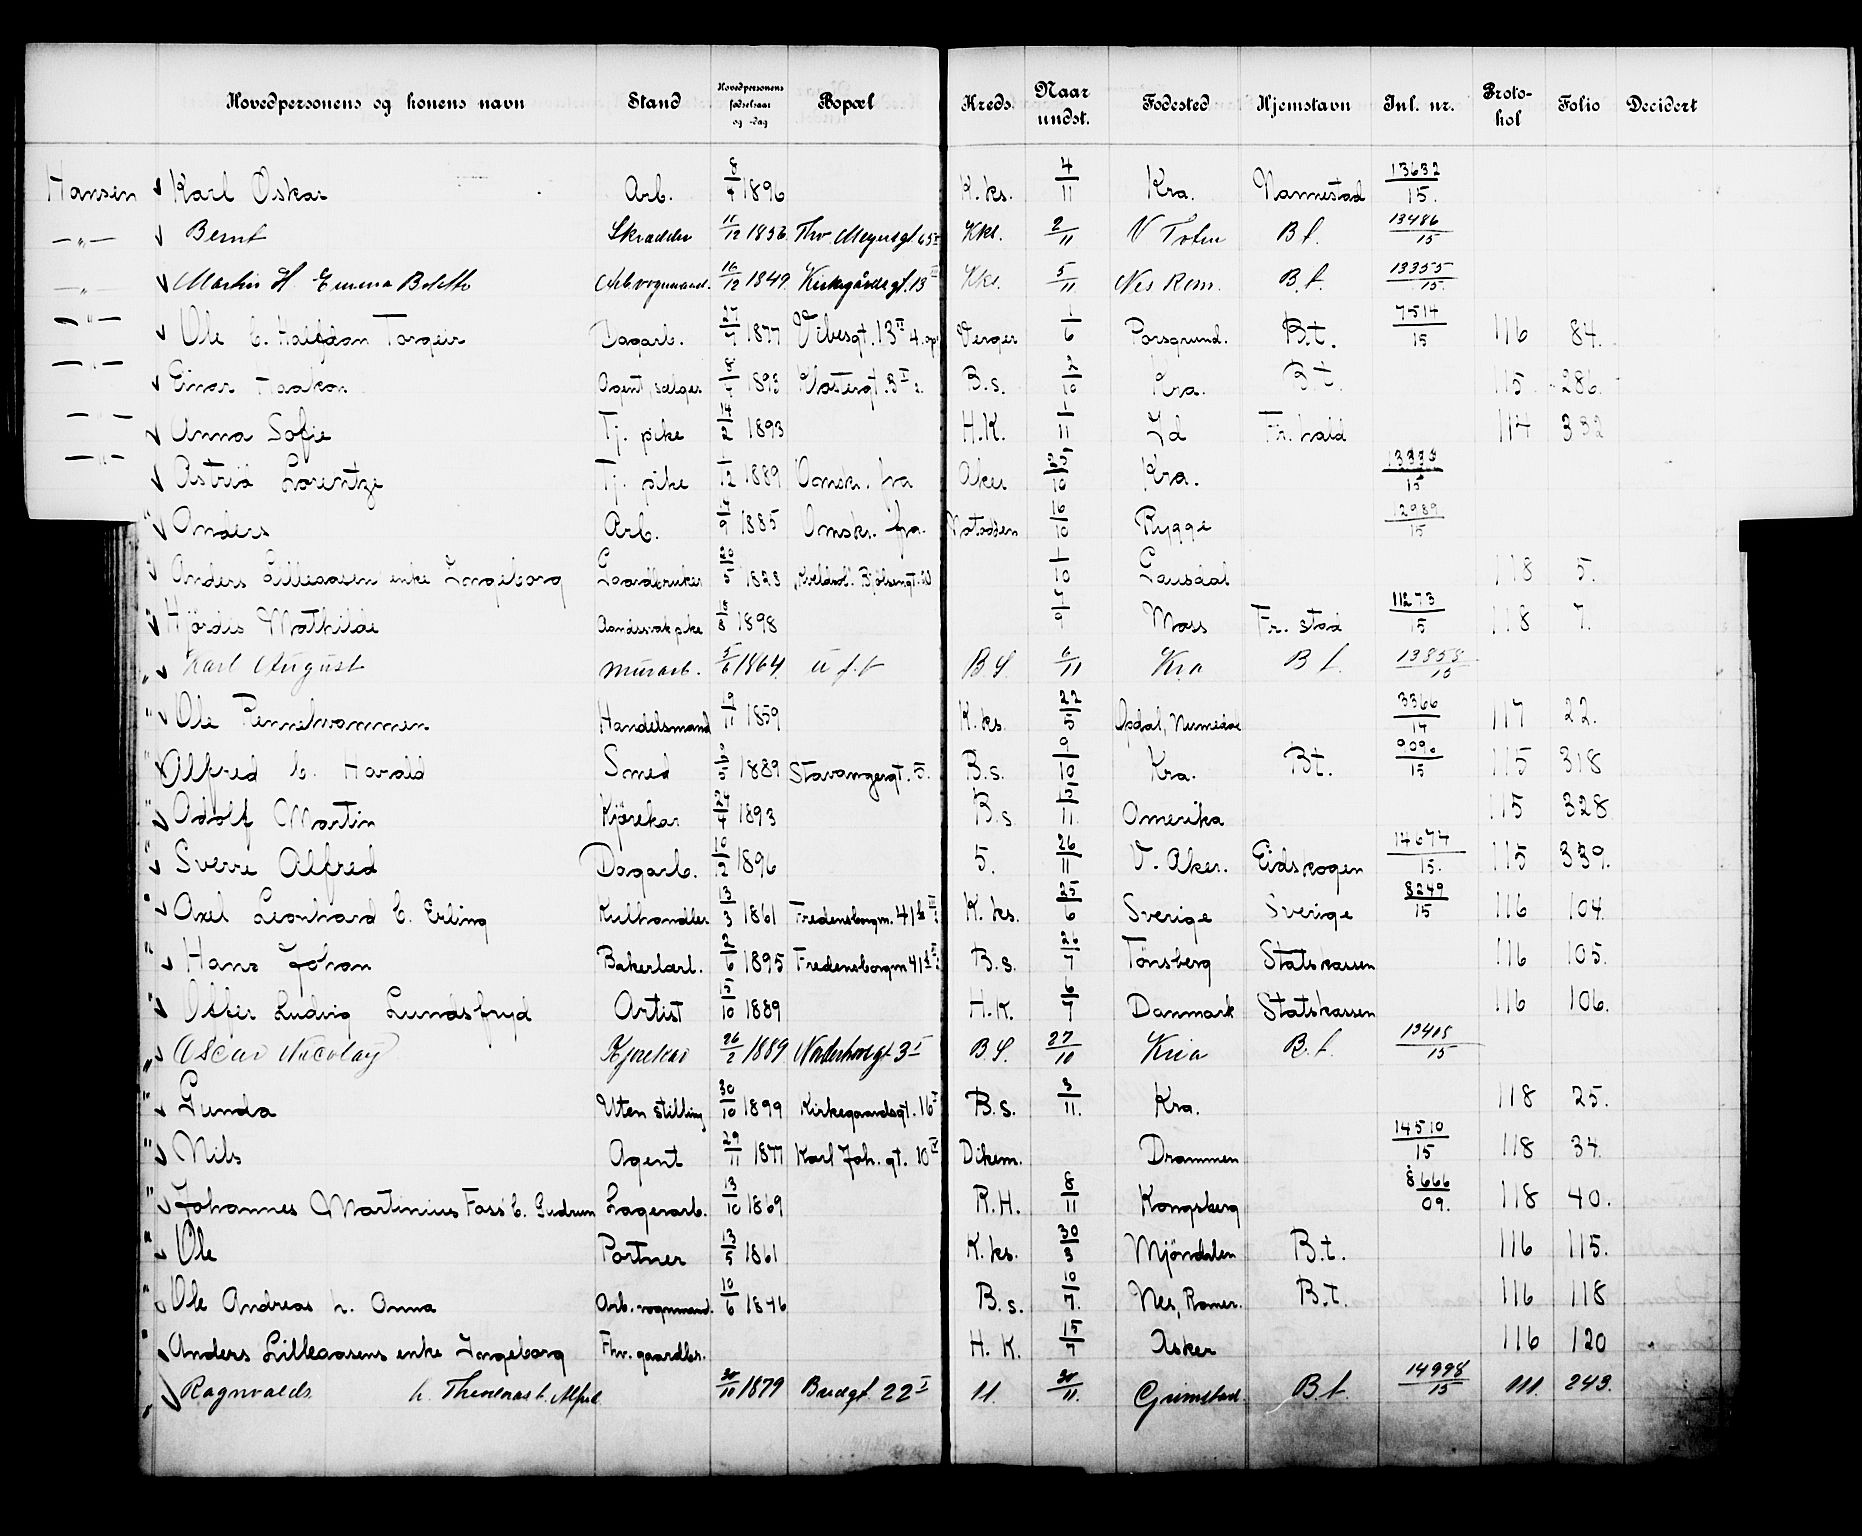 Hovedpersonens og konens navn Stand Hovedpersonens fødselsaar og -dag Bopæl Kreds. Naar undst. Fødested Hjemstavn Jnl. nr. Protokol Folio Decidert
Hansen Karl Oskar Arb. 8/4 1896 K.ks. 4/11 Kra. Nannestad 13632/15.
—„— Bernt Skrædder 11/12 1856 Thv. Meyersgt. Kks. 2/11 V Toten B.t. 13486/15
—„— Martin H. Emma Bolette Arb vognmand. 16/12 1849 Kirkegårdsgt. 13 Kks. 5/11 Nes Rom. B.t. 13355/15.
—„— Ole b. Halfdan Torgeir Dagarb. 27/7 1877 Vibesgt. 13 II 4. op Verger 1/6 Porsgrund. B.t. 7514/15 116 84.
—„— Einar Haakon Agent, sælger 1893 Klostergt. 3 I B.s. Kra. B.t. 115 286.
—„— Anna Sofie Tj. pike 14/2 1893 H.K. 1/11 Id Fr. hald 114 332
—„— Astrid Lorentze Tj. pike 1/12 1889 Omsk. fra Aker 25/10 Kra.
" Anders Arb. 1885 Omsk. fra. Notodden 16/10 Rygge 12989/15
" Anders Lilleaasen enke Ingeborg Gaardbruker 20/5 1823 Kveldsol. Bjølsengt. 1/10 Gausdal 118 5.
" Hjördis Mathilde Aandssvak pike 18/8 1898 Moss Fr. stad 11273/15 118 7.
" Karl August Murarb. 5/6 1864. u.f.b B.S. 6/11 Kra B.t. 13853/15
" Ole Rennehvammen Handelsmand 19/11 1859 K.ks. 22/5 Opdal, Numedal 3366/14 117 22.
" Alfred b. Harald Smed 1889 Stavangergt. 5. B.s. 9/10 Kra. B.t. 9090/15 115 318
" Adolf Martin Kjørekar 24/4 1893 B.s. Amerika 115 328
" Sverre Alfred Dagarb. 10/12 1896 5. 26/11 V. Aker. Eidskogen 14674/15. 115 339.
" Axel Leonhard b. Erling Kulhandler 13/3 1861 Fredensborgv. 41 b III K. ks. 25/6 Sverige Sverige 8249/15 116 104.
" Hans Johan Bakerlærl. 2/6 1895 Fredensborgv 41 B.s. 26/7 Tönsberg Statskassen 116 105.
" Ludvig Lundsfryd Artist 15/10 1889 H.K. 6/7 Danmark Statskassen 116 106.
" Oscar Nicolay Kjørekar 26/2 1889 Nordre 3 I B.S. 27/10 Kria B.t. 13415/15
" Gunda Uten stilling 30/10 1899 Kirkegaardsgt. 16 I B.s. 3/11. Kra. 118 25.
" Nils Agent 29/11 1877 Karl Joh. gt. 10 IV Dikem. Drammen 14510/15 118 34.
" Johannes Martinius Foss b. Gudrun Lagerarb. 13/10 1869 R.H. 8/11 Kongsberg 8666/09. 118 40.
" Ole Portner 13/5 1861 K.ks. 30/3 Mjöndalen B.t. 116 115.
" Ole Andreas h. Anna Arb. vognmand. 10/6 1846 B.s. 10/7. Nes, Romer. B.t. 116 118
" Anders Lilleaasens enke Ingeborg Fhv. gaardbr. H. K. 15/7 Asker 116 120
" Ragnvalds h. Theodora b. Alfred 30/11 1879 Bredgt. 22 I 11. 30/11. Grimstad. B.t. 14998/15 111. 243.